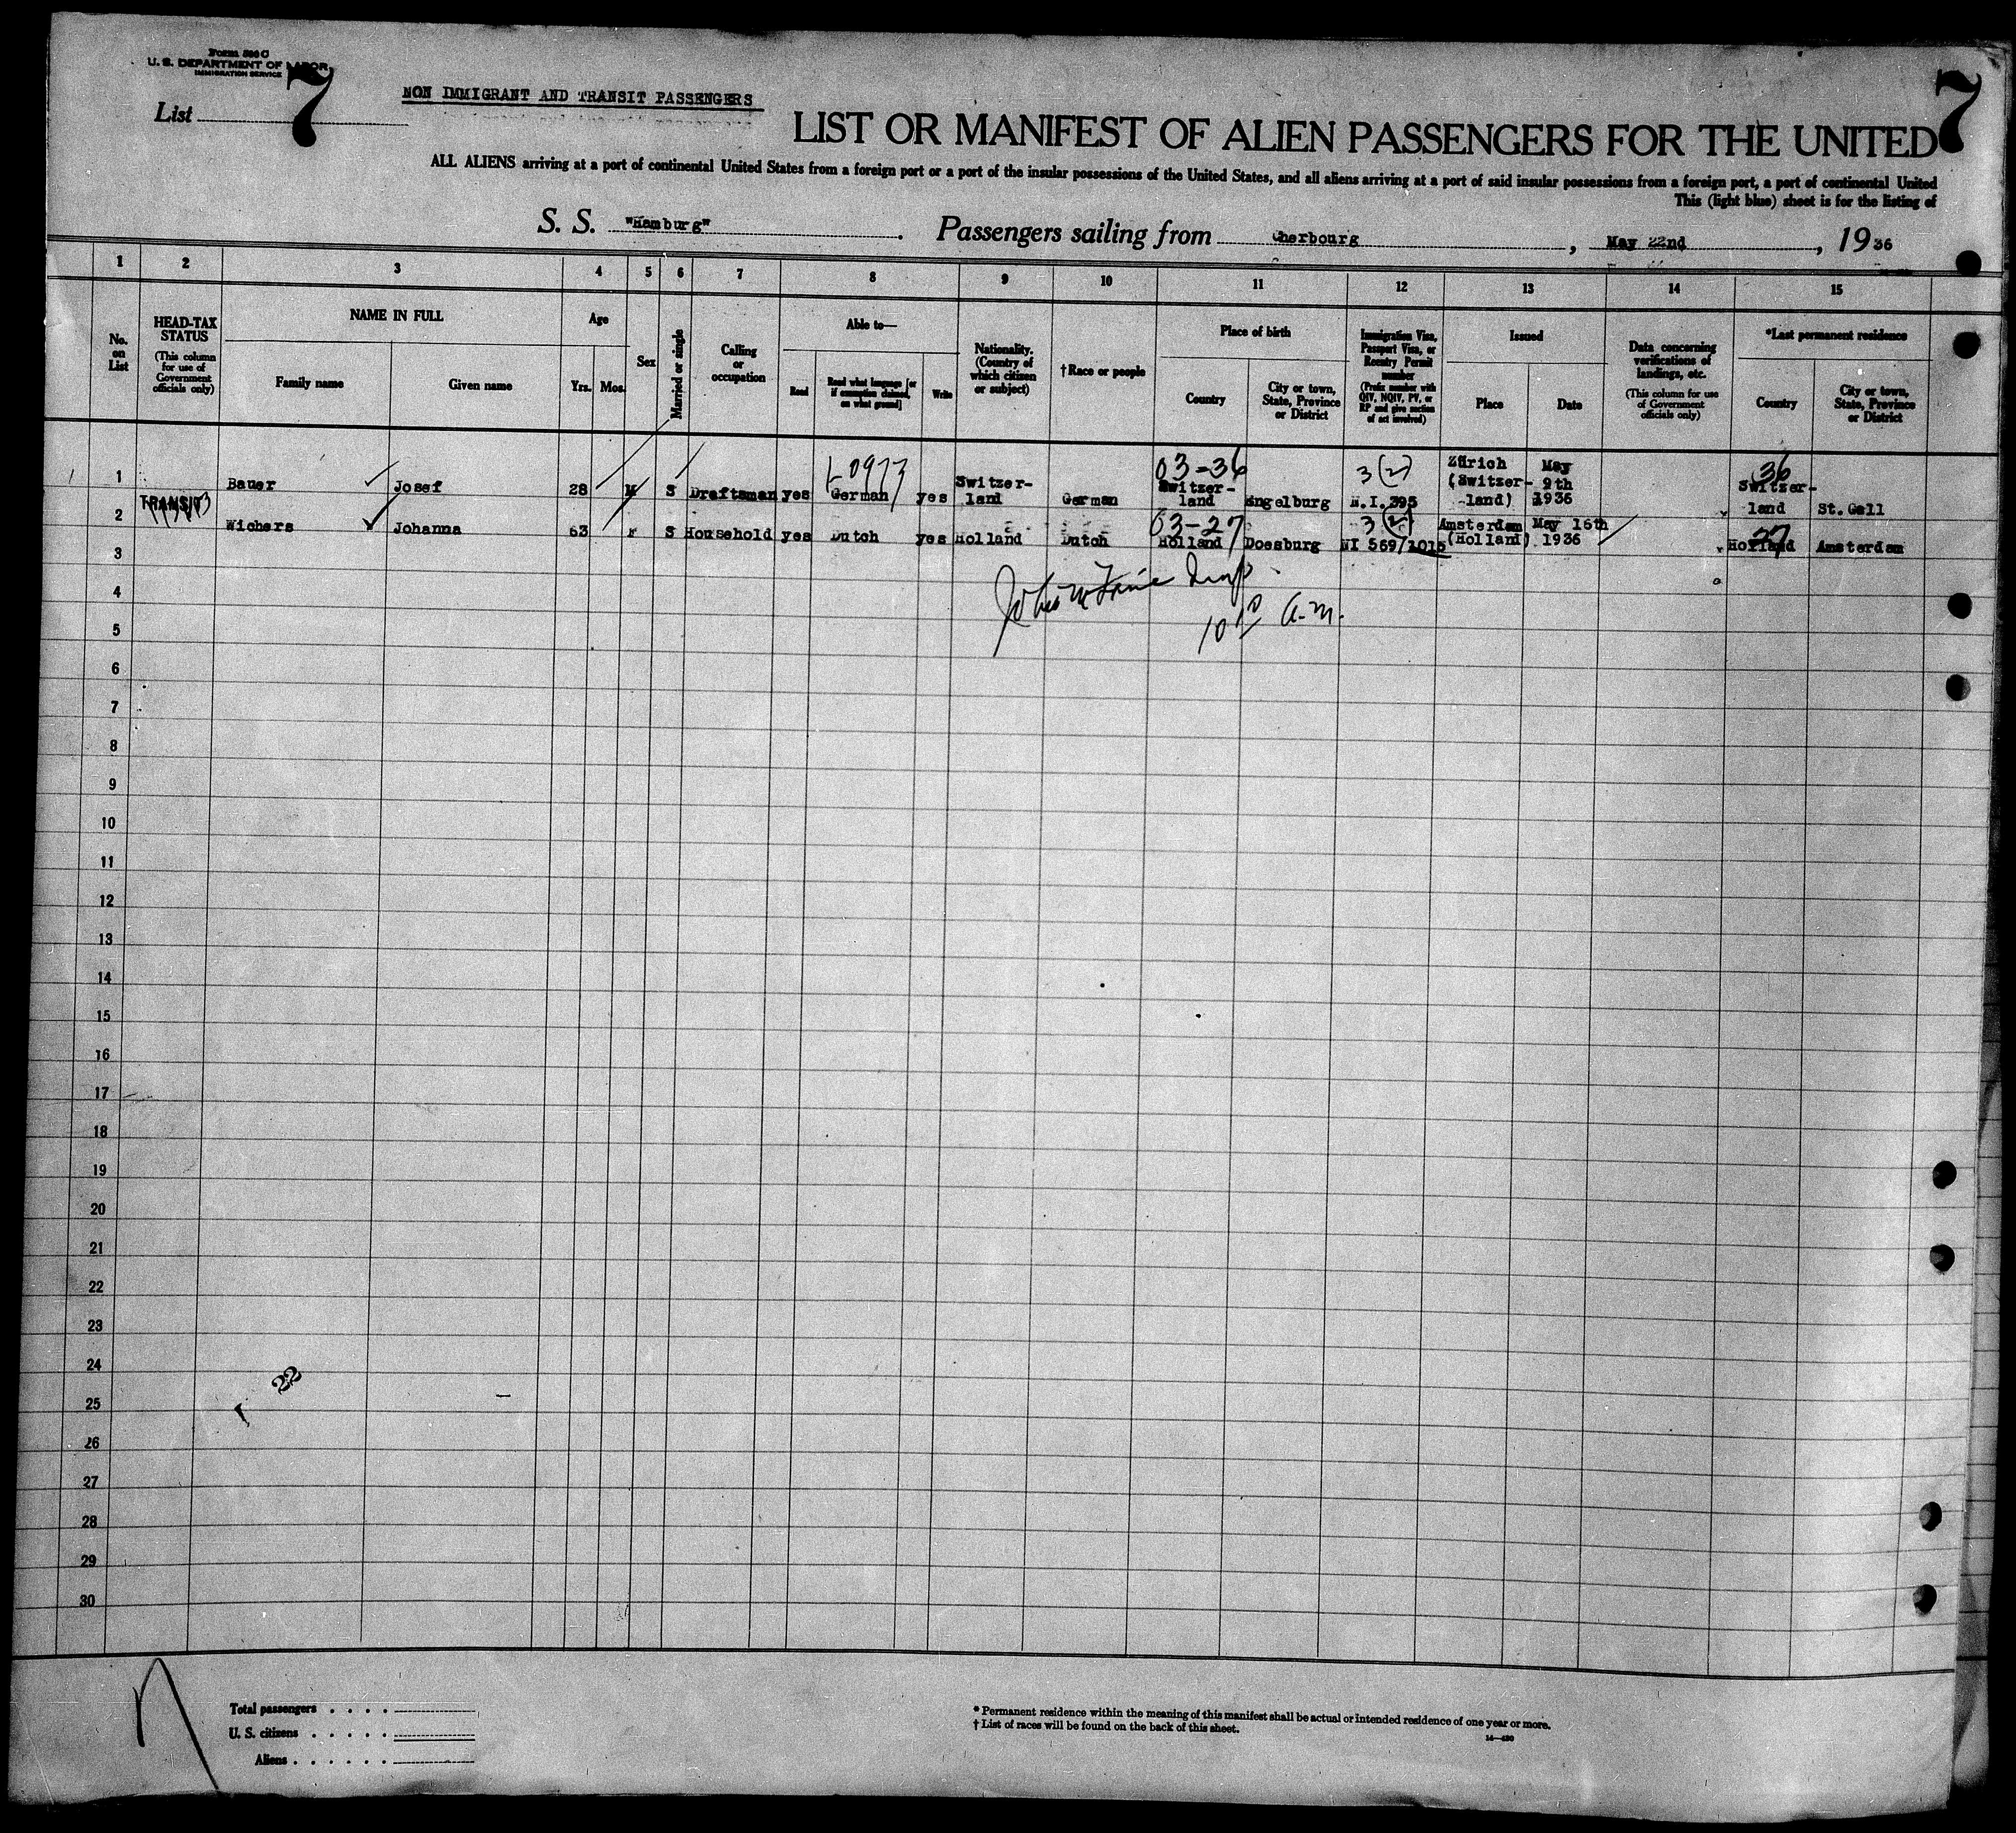 Form 500 C
U. S. DEPARTMENT OF LABOR
IMMIGRATION SERVICE
List 7
NON IMMIGRANT AND TRANSIT PASSENGERS
7
LIST OR MANIFEST OF ALIEN PASSENGERS FOR THE UNITED
ALL ALIENS arriving at a port of continental United States from a foreign port or a port of the insular possessions of the United States, and all aliens arriving at a port of said insular possessions from a foreign port, a port of continental United
This (light blue) sheet is for the listing of
S. S. "Hamburg". Passengers sailing from Cherbourg, May 22nd, 1936
1 2 3 4 5 6 7 8 9 10 11 12 13 14 15
No. on List
HEAD-TAX STATUS
(This column for use of Government officials only)
NAME IN FULL
Family name Given name
Age
Yrs. Mos.
Sex
Married or single
Calling or occupation
Able to—
Read
Read what language [or if exemption claimed, on what ground]
Write
Nationality. (Country of which citizen or subject)
†Race or people
Place of birth
Country
City or town, State, Province or District
Immigration Visa, Passport Visa, or Reentry Permit number
(Prefix number with QIV, NQIV, PV, or RP and give section of act involved)
Issued
Place Date
Data concerning verifications of landings, etc.
(This column for use of Government officials only)
*Last permanent residence
Country
City or town, State, Province or District
03-36 3(2) 36
1 Bauer Josef 28 M S Draftsman yes German yes Switzer-land German Switzer-land Engelburg N.I.395 Zürich (Switzer-land) May 9th 1936 Switzer-land St.Gall
TRANSIT
03-27 3(2) 27
2 Wichers Johanna 63 F S Household yes Dutch yes Holland Dutch Holland Doesburg NI 569/1015 Amsterdam (Holland) May 16th 1936 Holland Amsterdam
3
4
10 A.M.
5
6
7
8
9
10
11
12
13
14
15
16
17
18
19
20
21
22
23
24
22
25
26
27
28
29
30
Total passengers
U. S. citizens
Aliens
* Permanent residence within the meaning of this manifest shall be actual or intended residence of one year or more.
† List of races will be found on the back of this sheet.